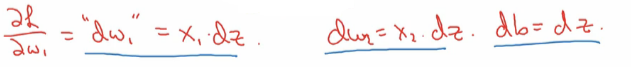 ∂L/∂w₁ = "dw₁" = x₁·dz. dw₂ = x₂·dz. db = dz.